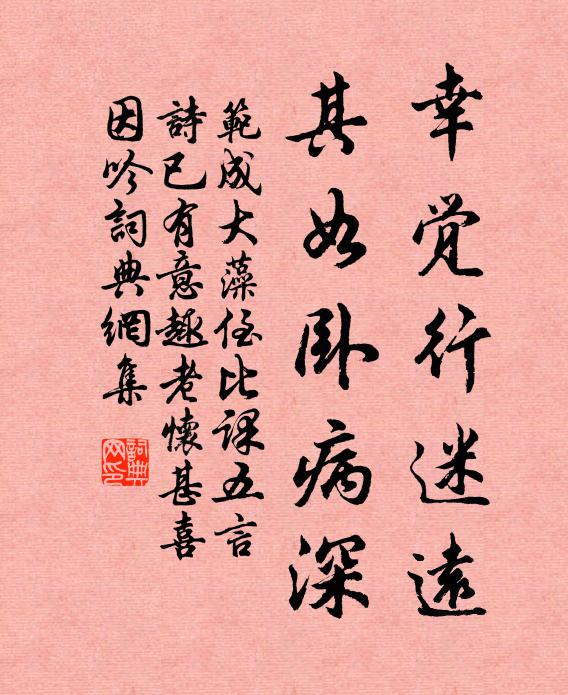 幸觉行迷远
其如卧病深
範成大藻侄比课五言
詩已有意趣老懷甚喜
因吟詞典網集
詞典网印